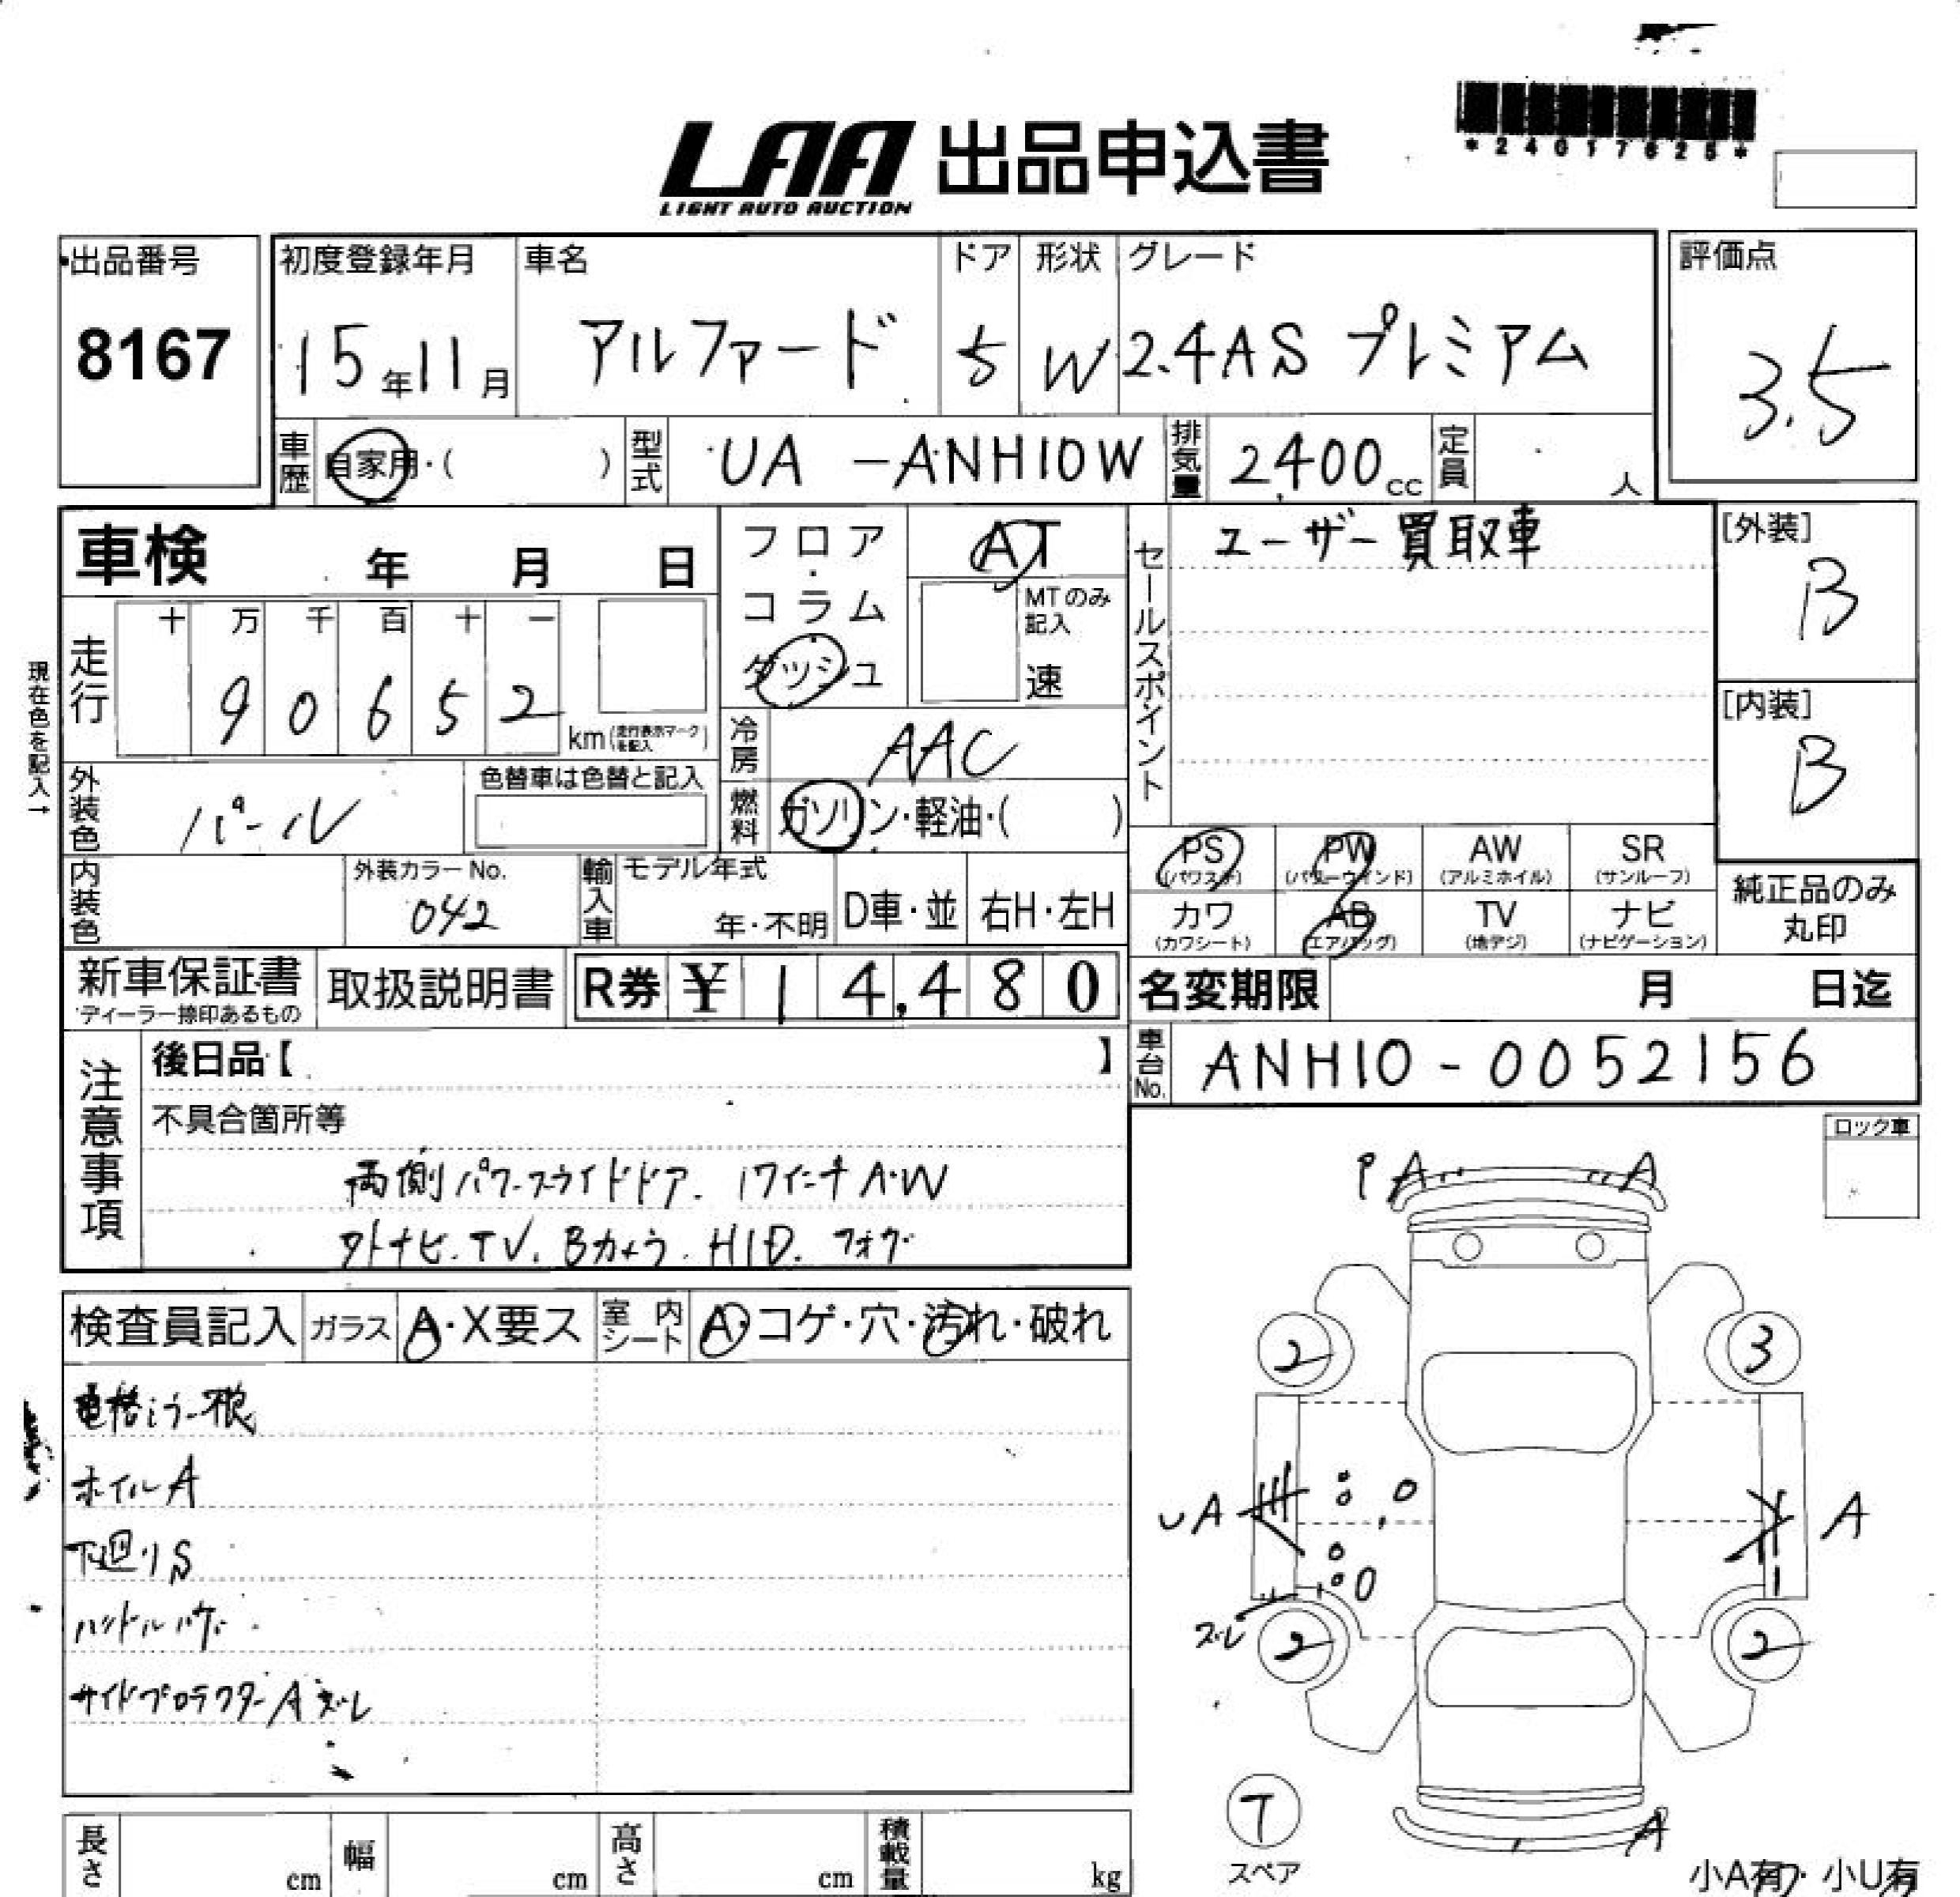 *24017625*
LAA 出品申込書
LIGHT AUTO AUCTION
出品番号
8167
初度登録年月
15年11月
車名
アルファード
ドア
5
形状
W
グレード
2.4AS プレミアム
評価点
3.5
車歴 自家用・( )
型式 UA -ANH10W
排気量 2,400cc
定員 人
車検 年 月 日
フロア・コラム
ダッシュ
AT
MTのみ記入
速
セールスポイント
ユーザー買取車
[外装]
B
[内装]
B
現在色を記入→
走行
十 万 千 百 十 一
9 0 6 5 2
km(走行表示マークを記入)
冷房 AAC
外装色 パール
色替車は色替と記入
燃料 ガソリン・軽油・( )
PS (パワステ)
PW (パワーウインド)
AW (アルミホイル)
SR (サンルーフ)
カワ (カワシート)
AB (エアバッグ)
TV (地デジ)
ナビ (ナビゲーション)
純正品のみ
丸印
内装色
外装カラーNo.
042
輸入車
モデル年式
年・不明
D車・並
右H・左H
新車保証書
ディーラー捺印あるもの
取扱説明書
R券 ¥ 14,480
名変期限 月 日迄
車台No. ANH10-0052156
注意事項
後日品【 】
不具合箇所等
両側パワースライドドア. 17インチA・W
外ナビ.TV.Bカメラ.HID.フォグ
ロック車
検査員記入
ガラス A・X要ス
室内シート A・コゲ・穴・汚れ・破れ
電格ミラー不良
ホイルA
下廻りS
サイドプロテクターAズレ
P A A
2 3
UA A
ズレ
2 2
T
スペア
A
長さ cm
幅 cm
高さ cm
積載量 kg
小A有・小U有